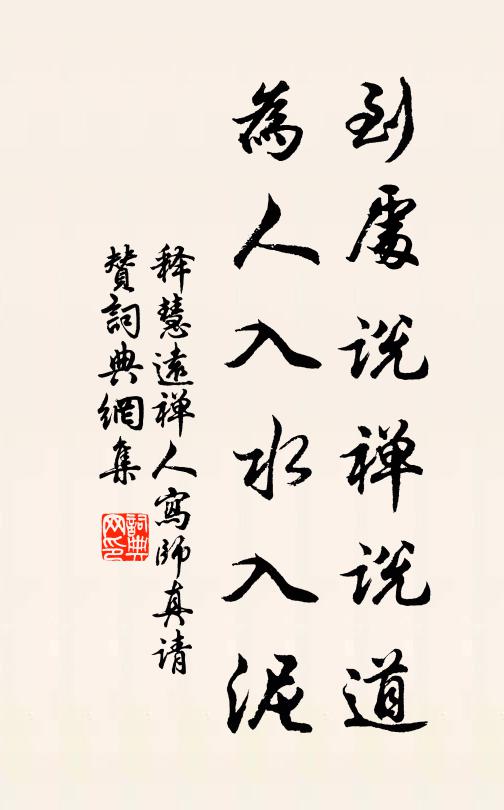 到處说禅说道
為人入水入泥
释慧遠禅人寫師真请
赞詞典網集
詞典网印